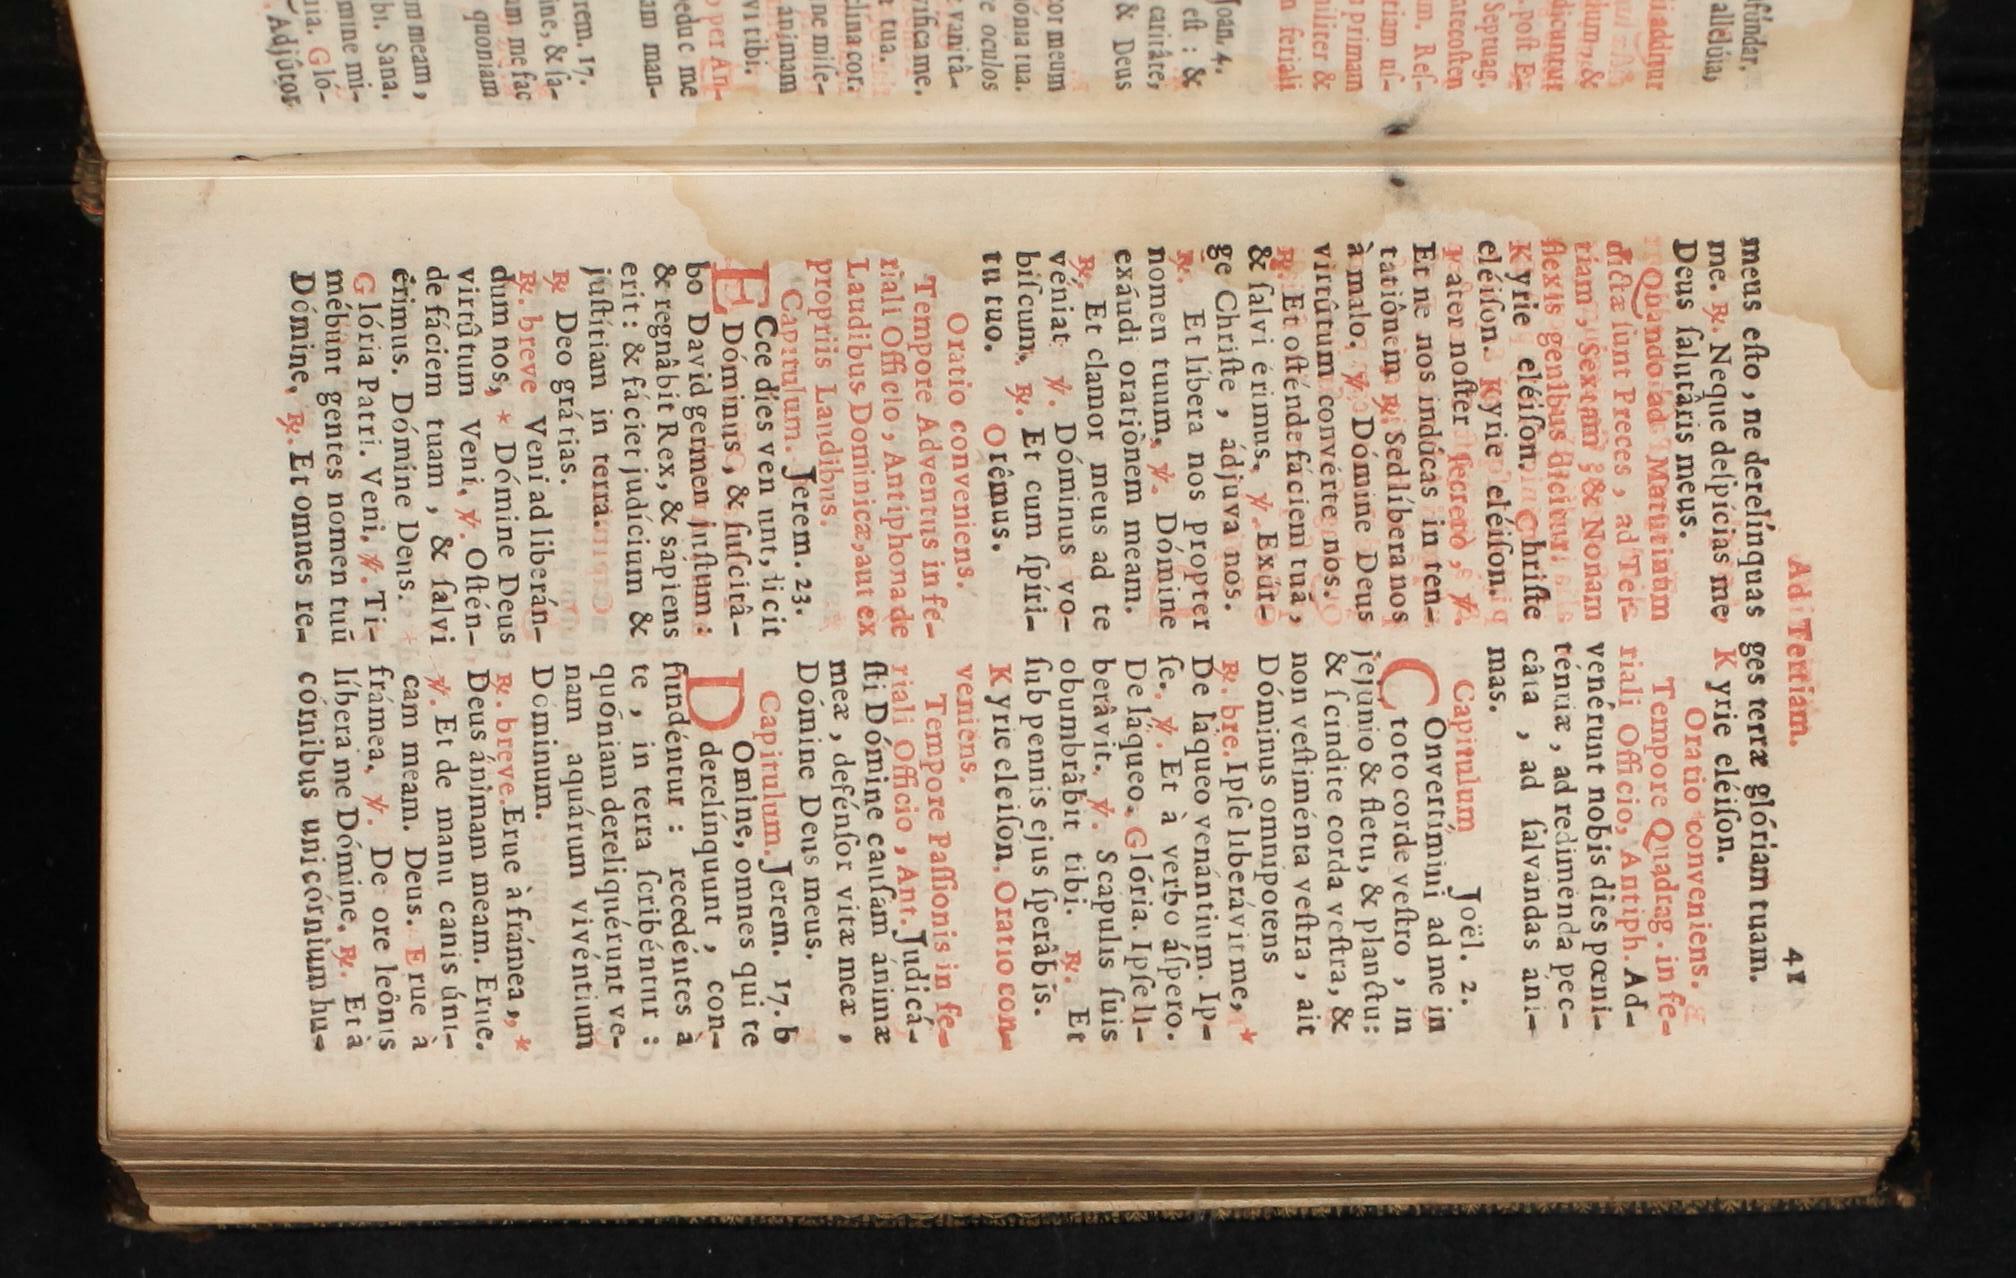 Ad Tertiam. 41
meus eſto, ne derelínquas
me. ℟. Neque deſpícias me
Deus ſalutâris meus.
Quando ad Matutinum
dictæ ſunt Preces, ad Ter-
tiam, Sextam, & Nonam
flexis genibus dicitur:
Kyrie eléiſon. Chriſte
eléiſon. Kyrie eléiſon.
Pater noſter ſecretò, ℣.
Et ne nos indúcas in ten-
tatiônem ℟. Sed líbera nos
à malo. ℣. Dómine Deus
virtûtum convérte nos.
℟. Et oſténde fáciem tuā,
& ſalvi érimus. ℣. Exúr-
ge Chriſte, ádjuva nos.
℟. Et líbera nos propter
nomen tuum. ℣. Dómine
exáudi oratiònem meam.
℟. Et clamor meus ad te
véniat ℣. Dóminus vo-
biſcum. ℟. Et cum ſpíri-
tu tuo. Orêmus.
Oratio conveniens.
Tempore Adventus in fe-
riali Officio, Antiphona de
Laudibus Dominicæ, aut ex
propriis Laudibus.
Capitulum. Jerem. 23.
ECce díes ven unt, di cit
Dóminus, & ſuſcitâ-
bo David germen juſtum:
& regnâbit Rex, & sápiens
erit: & fáciet judícium &
juſtítiam in terra.
℟ Deo grátias.
℟. breve Veni ad liberán-
dum nos, * Dómine Deus
virtûtum Veni. ℣. Oſtén-
de fáciem tuam, & ſalvi
érimus. Dómine Deus.
Glória Patri. Veni. ℣. Ti-
mébunt gentes nomen tuū
Dómine. ℟. Et omnes re-
ges terræ glóriam tuam.
Kyrie eléiſon.
Oratio conveniens.
Tempore Quadrag. in fe-
riali Officio, Antiph. Ad-
venérunt nobis díes pœni-
téntiæ, ad redimenda pec-
câta, ad ſalvandas ani-
mas.
Capitulum Joël. 2.
COnvertímini ad me in
toto corde veſtro, in
jejúnio & fletu, & planctu:
& ſcindite corda veſtra, &
non veſtiménta veſtra, ait
Dóminus omnipotens
℟. bre. Ipſe liberávit me, *
De láqueo venántium. Ip-
ſe. ℣. Et à verbo áſpero.
De láqueo. Glória. Ipſe li-
berâvit. ℣. Scapulis ſuis
obumbrâbit tibi. ℟. Et
ſub pennis ejus ſperâbis.
Kyrie eleiſon, Oratio con-
veniens.
Tempore Paſſionis in fe-
riali Officio, Ant. Judicá-
ſti Dómine cauſam ánimæ
meæ, defénſor vitæ meæ,
Dómine Deus meus.
Capitulum. Jerem. 17. b
DOmine, omnes qui te
derelínquunt, con-
fundéntur: recedéntes à
te, in terra ſcribéntur:
quóniam dereliquérunt ve-
nam aquárum vivéntium
Dominum.
℟. bréve. Erue à frámea, *
Deus ánimam meam. Erue.
℣. Et de manu canis úni-
cam meam. Deus. Erue à
frámea. ℣. De ore leônis
líbera me Dómine. ℟. Et à
córnibus unicórnium hu-
allelúia,
Joan. 4.
eſt: &
& Deus
or meum
e oculos
vanitâ-
vífica me.
tua.
clina cor.
ne miſe-
animam
vi tibi.
per An-
educ me
am man-
rem. 17.
ine, & ſa-
am me fac
quoniam
m meam,
bi. Sana.
mune mi-
ia. Gló-
Adjútor